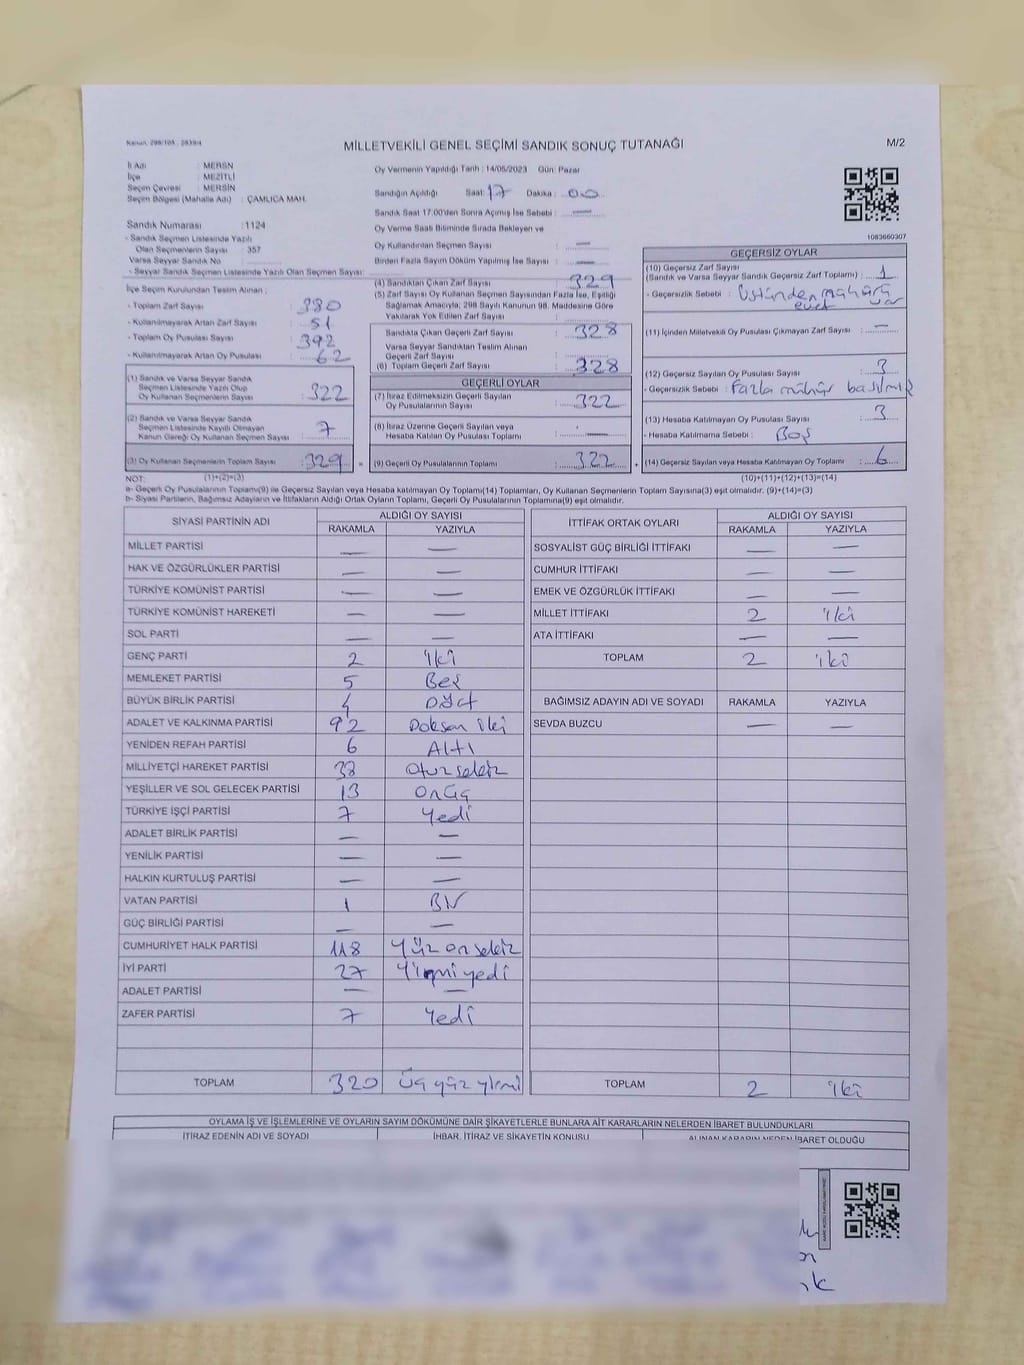 Kanun: 298/105 , 2839/4
MİLLETVEKİLİ GENEL SEÇİMİ SANDIK SONUÇ TUTANAĞI
M/2
İl Adı : MERSİN
İlçe : MEZİTLİ
Seçim Çevresi : MERSİN
Seçim Bölgesi (Mahalle Adı) : ÇAMLICA MAH.
Sandık Numarası : 1124
- Sandık Seçmen Listesinde Yazılı
Olan Seçmenlerin Sayısı : 357
Varsa Seyyar Sandık No :
- Seyyar Sandık Seçmen Listesinde Yazılı Olan Seçmen Sayısı:
Oy Vermenin Yapıldığı Tarih : 14/05/2023 Gün: Pazar
Sandığın Açıldığı Saat: 17 Dakika : 00
Sandık Saat 17:00'den Sonra Açımış İse Sebebi : —
Oy Verme Saati Bitiminde Sırada Bekleyen ve
Oy Kullandırılan Seçmen Sayısı : —
Birden Fazla Sayım Döküm Yapılmış İse Sayısı : —
1083660307
İlçe Seçim Kurulundan Teslim Alınan ;
- Toplam Zarf Sayısı : 380
- Kullanılmayarak Artan Zarf Sayısı : 51
- Toplam Oy Pusulası Sayısı : 392
- Kullanılmayarak Artan Oy Pusulası : 62
(1) Sandık ve Varsa Seyyar Sandık
Seçmen Listesinde Yazılı Olup
Oy Kullanan Seçmenlerin Sayısı : 322
(2) Sandık ve Varsa Seyyar Sandık
Seçmen Listesinde Kayıtlı Olmayan
Kanun Gereği Oy Kullanan Seçmen Sayısı : 7
(3) Oy Kullanan Seçmenlerin Toplam Sayısı : 329
(4) Sandıktan Çıkan Zarf Sayısı : 329
(5) Zarf Sayısı Oy Kullanan Seçmen Sayısından Fazla İse, Eşitliği
Sağlamak Amacıyla; 298 Sayılı Kanunun 98. Maddesine Göre
Yakılarak Yok Edilen Zarf Sayısı :
Sandıkta Çıkan Geçerli Zarf Sayısı : 328
Varsa Seyyar Sandıktan Teslim Alınan
Geçerli Zarf Sayısı :
(6) Toplam Geçerli Zarf Sayısı : 328
GEÇERLİ OYLAR
(7) İtiraz Edilmeksizin Geçerli Sayılan
Oy Pusulalarının Sayısı : 322
(8) İtiraz Üzerine Geçerli Sayılan veya
Hesaba Katılan Oy Pusulası Toplamı : —
= (9) Geçerli Oy Pusulalarının Toplamı : 322
GEÇERSİZ OYLAR
(10) Geçersiz Zarf Sayısı
(Sandık ve Varsa Seyyar Sandık Geçersiz Zarf Toplamı) : 1
- Geçersizlik Sebebi : Üstünden mühürü
evet var
(11) İçinden Milletvekili Oy Pusulası Çıkmayan Zarf Sayısı : —
(12) Geçersiz Sayılan Oy Pusulası Sayısı : 3
- Geçersizlik Sebebi : Fazla mühür basılmış
(13) Hesaba Katılmayan Oy Pusulası Sayısı : 3
- Hesaba Katılmama Sebebi : Boş
+ (14) Geçersiz Sayılan veya Hesaba Katılmayan Oy Toplamı : 6
NOT: (1)+(2)=(3) (10)+(11)+(12)+(13)=(14)
a- Geçerli Oy Pusulalarının Toplamı(9) ile Geçersiz Sayılan veya Hesaba katılmayan Oy Toplamı(14) Toplamları, Oy Kullanan Seçmenlerin Toplam Sayısına(3) eşit olmalıdır. (9)+(14)=(3)
b- Siyasi Partilerin, Bağımsız Adayların ve İttifakların Aldığı Ortak Oyların Toplamı, Geçerli Oy Pusulalarının Toplamına(9) eşit olmalıdır.
SİYASİ PARTİNİN ADI ALDIĞI OY SAYISI
RAKAMLA YAZIYLA
MİLLET PARTİSİ — —
HAK VE ÖZGÜRLÜKLER PARTİSİ — —
TÜRKİYE KOMÜNİST PARTİSİ — —
TÜRKİYE KOMÜNİST HAREKETİ — —
SOL PARTİ — —
GENÇ PARTİ 2 iki
MEMLEKET PARTİSİ 5 Beş
BÜYÜK BİRLİK PARTİSİ 4 Dört
ADALET VE KALKINMA PARTİSİ 92 Doksan iki
YENİDEN REFAH PARTİSİ 6 Altı
MİLLİYETÇİ HAREKET PARTİSİ 38 Otuz sekiz
YEŞİLLER VE SOL GELECEK PARTİSİ 13 Onüç
TÜRKİYE İŞÇİ PARTİSİ 7 Yedi
ADALET BİRLİK PARTİSİ — —
YENİLİK PARTİSİ — —
HALKIN KURTULUŞ PARTİSİ — —
VATAN PARTİSİ 1 Bir
GÜÇ BİRLİĞİ PARTİSİ — —
CUMHURİYET HALK PARTİSİ 118 Yüz on sekiz
İYİ PARTİ 27 Yirmi yedi
ADALET PARTİSİ — —
ZAFER PARTİSİ 7 Yedi
TOPLAM 320 Üç yüz yirmi
İTTİFAK ORTAK OYLARI ALDIĞI OY SAYISI
RAKAMLA YAZIYLA
SOSYALİST GÜÇ BİRLİĞİ İTTİFAKI — —
CUMHUR İTTİFAKI — —
EMEK VE ÖZGÜRLÜK İTTİFAKI — —
MİLLET İTTİFAKI 2 iki
ATA İTTİFAKI — —
TOPLAM 2 iki
BAĞIMSIZ ADAYIN ADI VE SOYADI RAKAMLA YAZIYLA
SEVDA BUZCU — —
TOPLAM 2 iki
OYLAMA İŞ VE İŞLEMLERİNE VE OYLARIN SAYIM DÖKÜMÜNE DAİR ŞİKAYETLERLE BUNLARA AİT KARARLARIN NELERDEN İBARET BULUNDUKLARI
İTİRAZ EDENİN ADI VE SOYADI İHBAR, İTİRAZ VE ŞİKAYETİN KONUSU ALINAN KARARIN NEDEN İBARET OLDUĞU